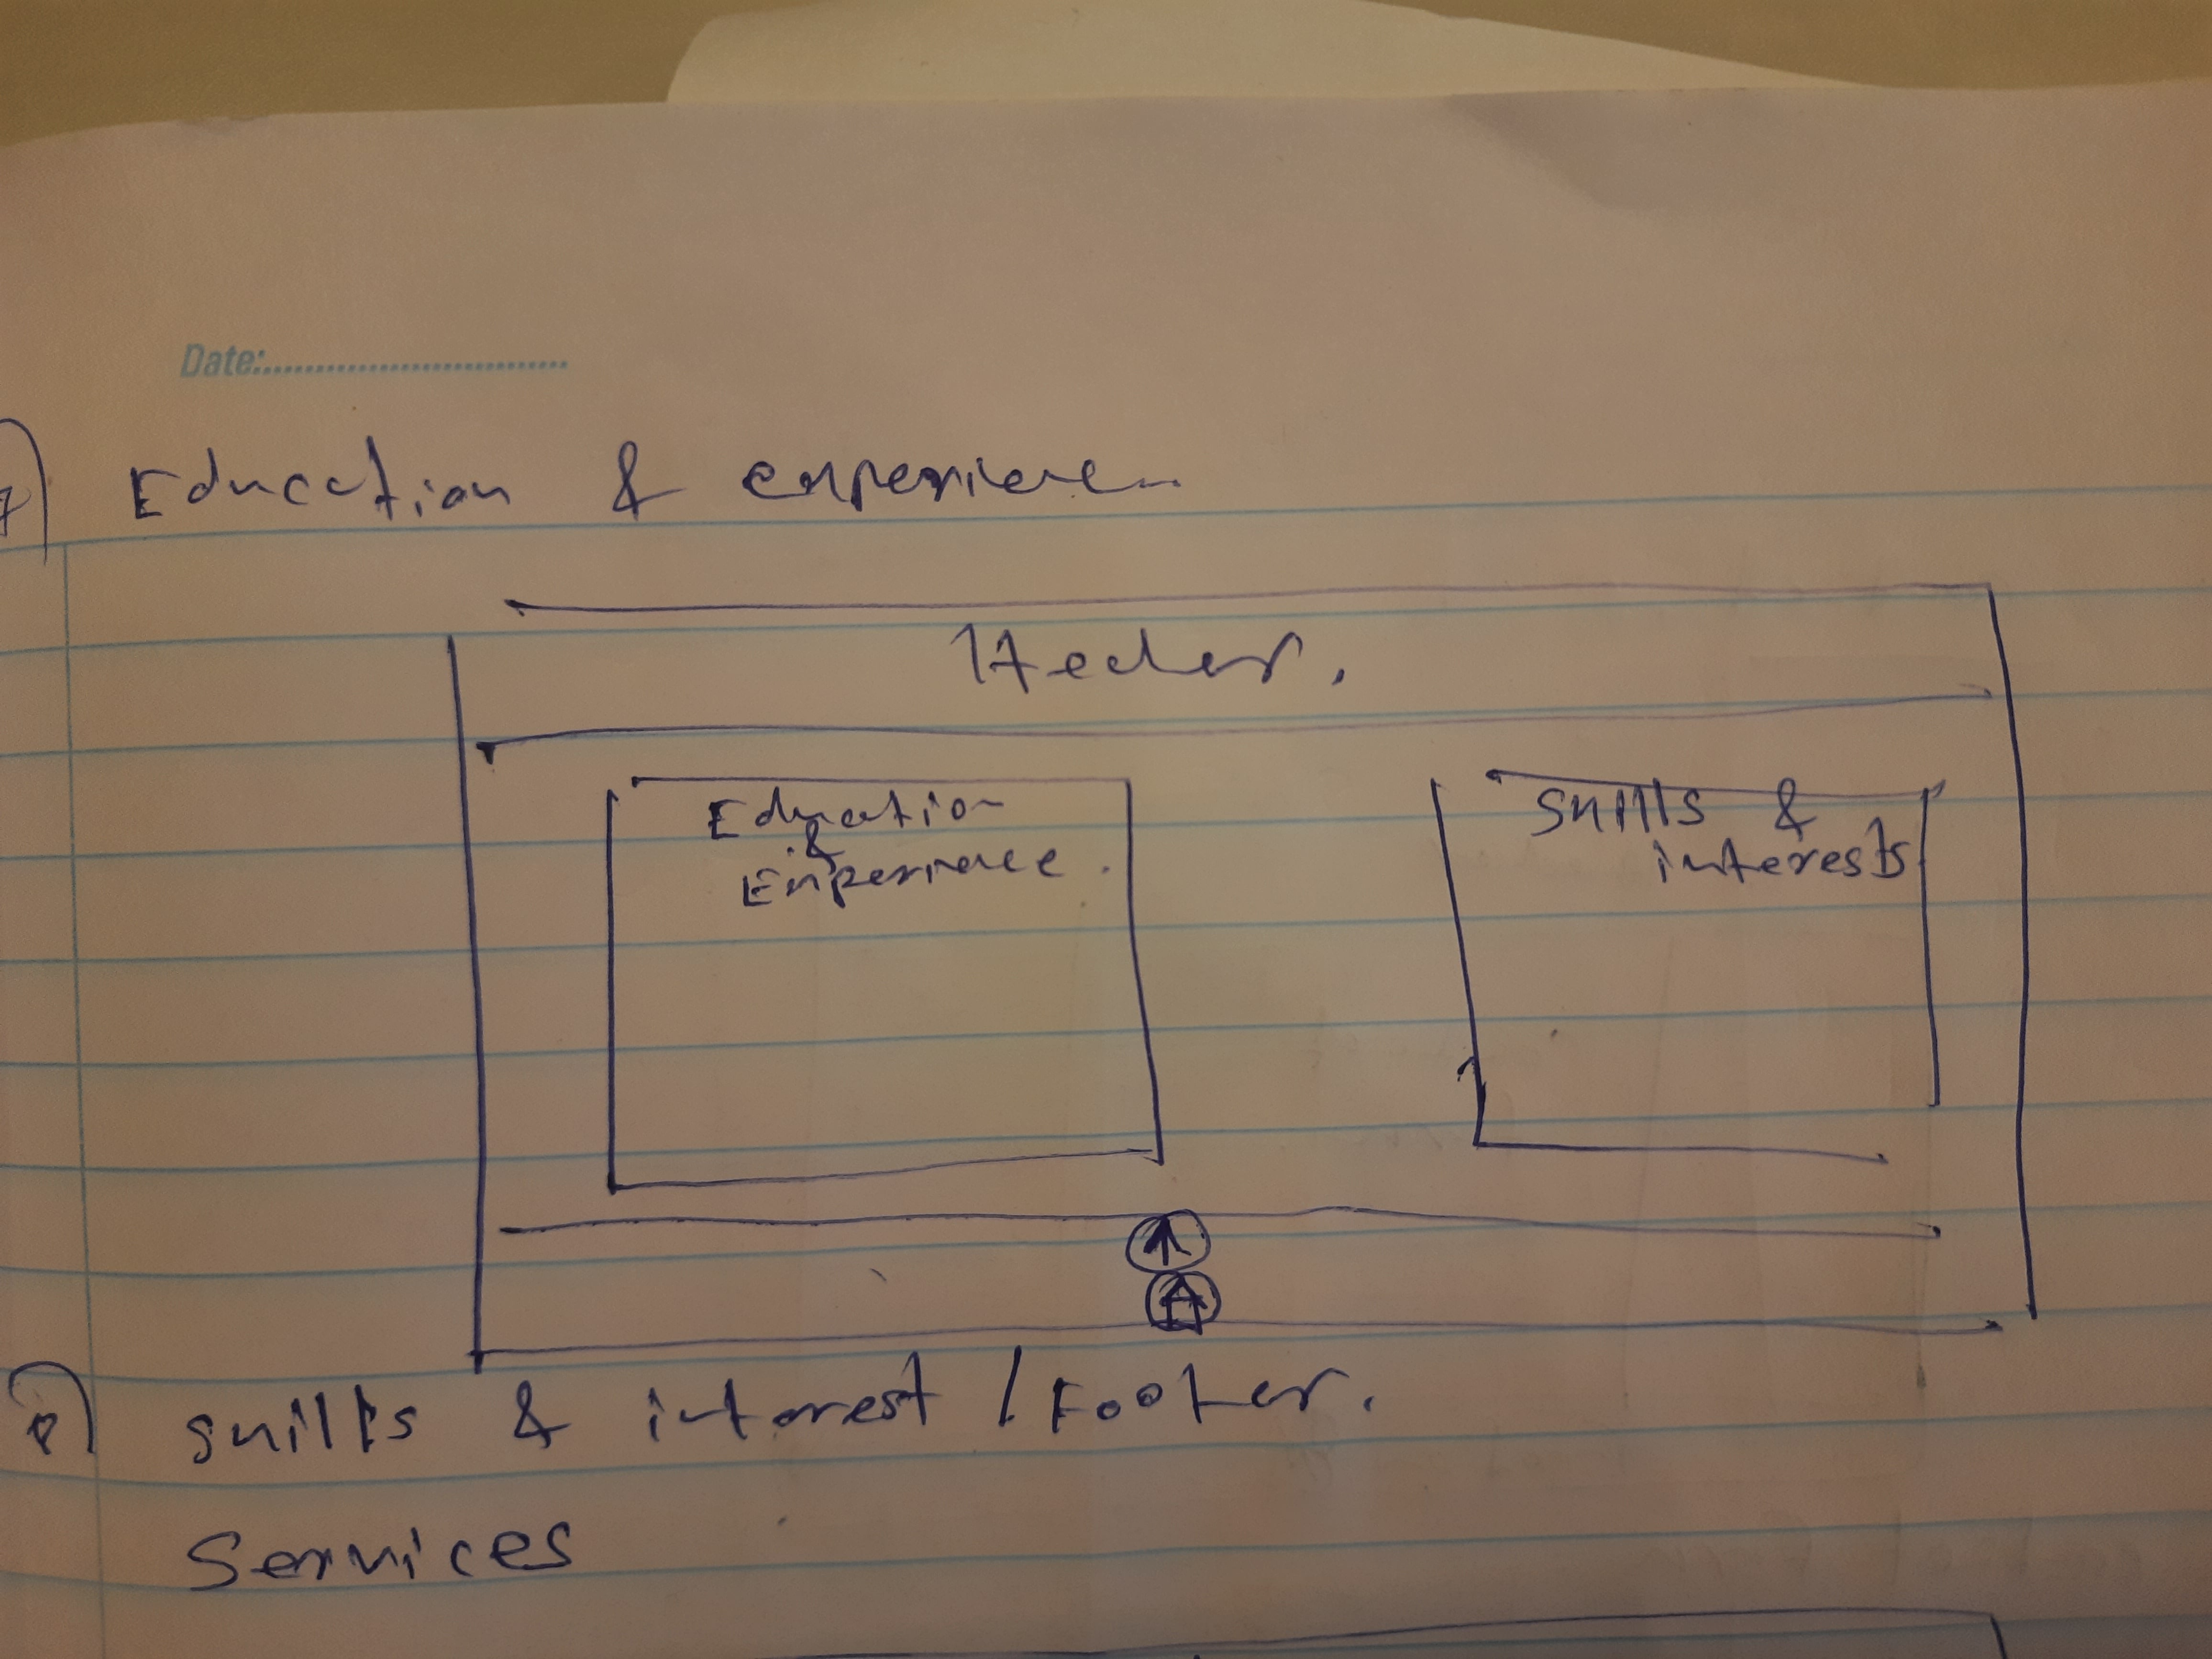 Date:..............................
7) Education & experience..
Header.
Education
&
Experience.
Skills &
interests
8) skills & interest / Footer.
Services